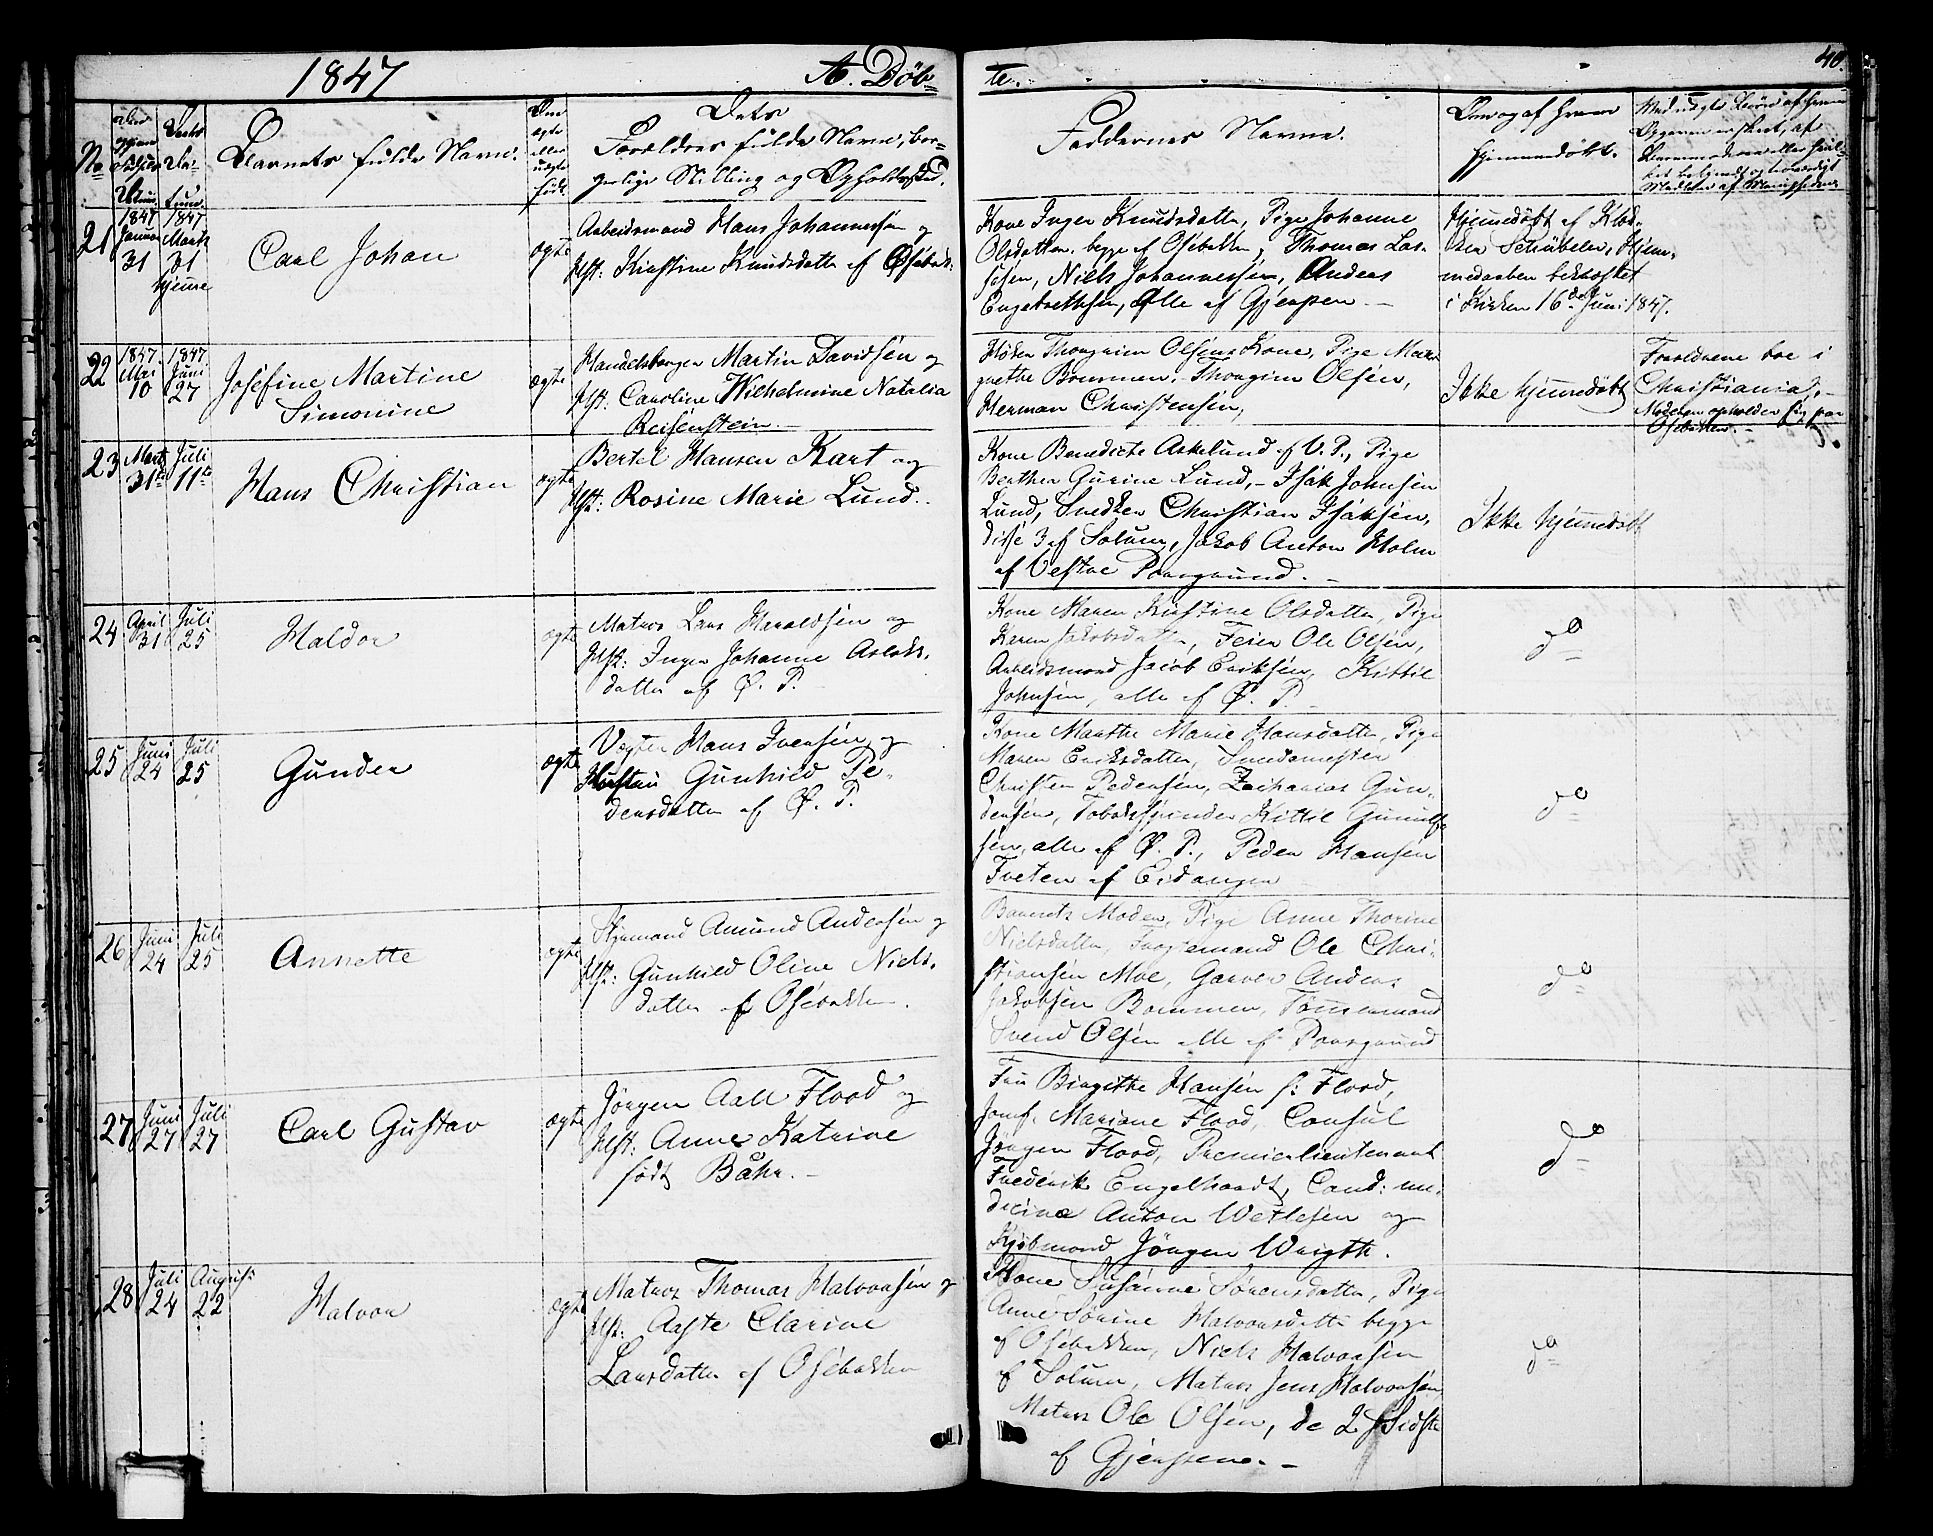 1847
A. Døb=
te.
40.
No
Barnets fulde Navn.
Dets
Forældres fulde Navne, bor=
gerlige Stilling og Opholdssted.
Faddernes Navne.
Om og af hvem
hjemmedøbt.
21
1847
Januar
31
1847
Marts
31
hjemme
Carl Johan
ægte
Arbeidsmand Hans Johannesen og
Hst: Kirstine Knudsdatter af Osebak:
Kone Inger Knudsdatter, Pige Johanne
Olsdatter begge af Osebakken, Thomas Lar-
sen, Niels Johannessen, Anders
Engebrethsen, Alle af Gjerpen. -
Hjemmedøbt af Klok-
ker Schubeler, Hjem-
medaaben bekræftet
i Kirken 16de Juni 1847.
22
1847
Mai
10
1847
Juni
27
Josefine Martine
Simonine
ægte
Handelsborger Martin Davidsen og
Hst: Caroline Wilhelmine Natalia
Reisenstein. -
Thorgrim Olsens Kone, Pige Mar-
grethe Brummen. Thorgrim Olsen,
Herman Christensen,
Ikke hjemmedøbt
Forældrene boe i
Christiania, -
Moderen opholder sig paa
Osebakken. -
23
Marts
31te
Juli
11te
Hans Christian
ægte
Bertel Hansen Kart og
Hst: Rosine Marie Lund. -
Kone Benedicte Askelund af V. P., Pige
Berthe Gurine Lund, - Isak Johnsen
Lund, Snedker Christian Isaksen,
disse 3 af Solum, Jakob Anton Holm
af Vestre Porsgrund. -
Ikke hjemmedøbt
24
April
31
Juli
25
Haldor
ægte
Matros Lars Haraldsen og
Hst: Inger Johanne Aslaks-
datter af Ø. P.
Kone Maren Kirstine Olsdatter, Pige
Karen Jakobsdatter, Feier Ole Olsen,
Arbeidsmand Jacob Eriksen, Kittil
Johnsen, alle af Ø. P.
do
25
Juni
24
Juli
25
Gunder
ægte
Vægter Hans Iversen og
Hustru Gunhild Pe-
dersdatter af Ø. P.
Kone Marthe Marie Hansdatter, Pige
Maren Eriksdatter, Smedemester
Christen Pedersen, Zacharias Gun-
dersen, Tobakspinder Kittil Gunulf-
sen, alle af Ø. P., Peder Hansen
Tveten af Eidanger
do
26
Juni
24
Juli
25
Annette
ægte
Styrmand Amund Andersen og
Hst: Gunhild Oline Niels-
datter af Osebakken.
Barnets Moder, Pige Anne Thorine
Nielsdatter, Ole Chri-
stiansen Moe, Garver Anders
Jakobsen Brommen, Tømmermand
Svend Olsen alle af Porsgrund
do
27
Juni
27
Juli
27
Carl Gustav
ægte
Jørgen Aall Flood og
Hst: Anne Katrine
født Bahr. -
Fru Birgithe Hansen f: Flood,
Jomf. Mariane Flood, Consul
Jørgen Flood, Premierlieutenant
Frederik Engelhardt, Cand: me-
dicinæ Anton Wetlesen og
Kjøbmand Jørgen Wrigth.
do
28
Juli
24
August
22
Halvor
ægte
Matros Thomas Halvorsen og
Hst: Aaste Clarine
Larsdatter af Osebakken
Kone Susanne Sørensdatter, Pige
Anne Sørine Halvorsdatter begge
af Osebakken, Niels Halvorsen
af Solum, Matros Jens Halvorsen
Matros Ole Olsen, de 2 Sidste
af Gjerpen. -
do